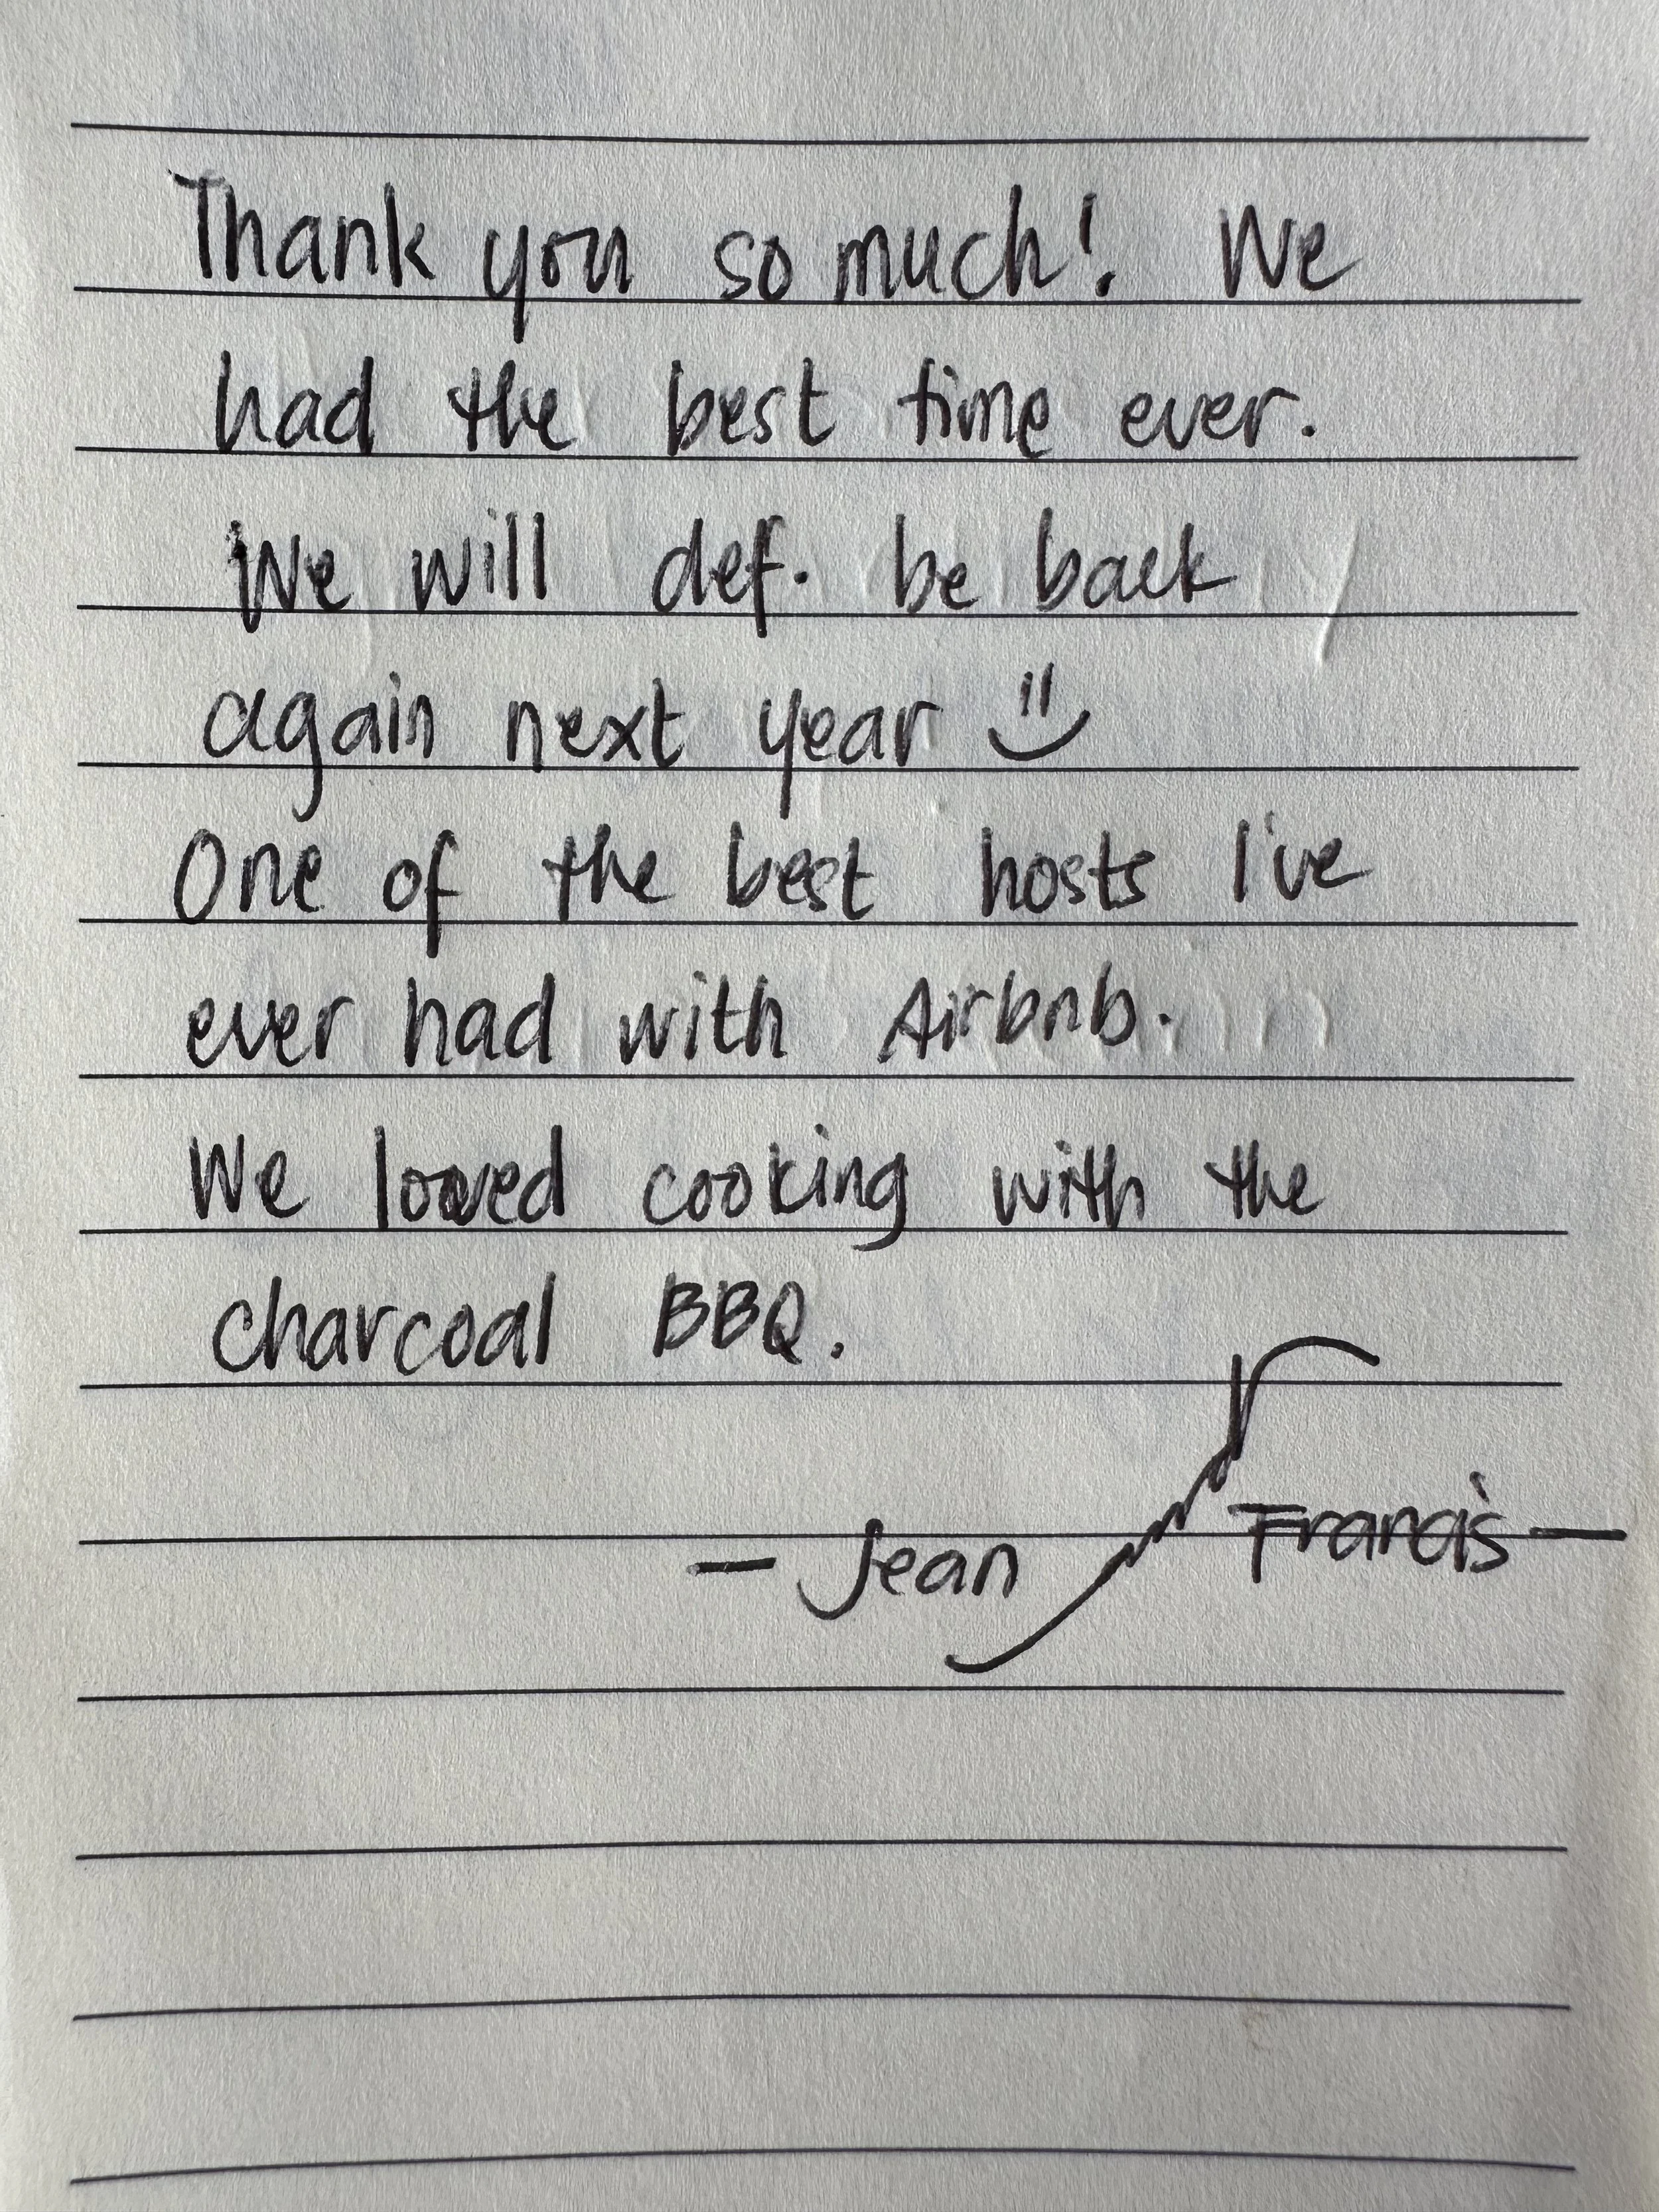 Thank you so much! We
had the best time ever.
We will def. be back
again next year
One of the best hosts I've
ever had with Airbnb.
We loved cooking with the
charcoal BBQ.
- Jean Francis -